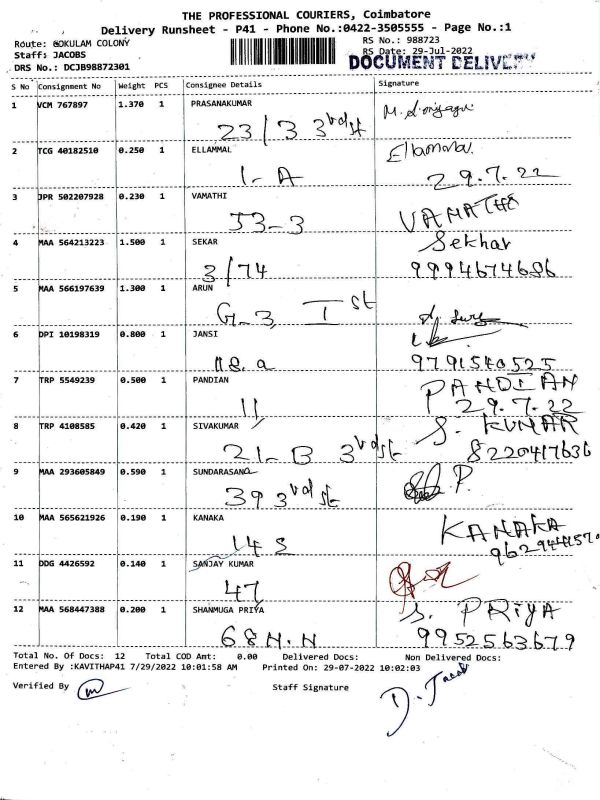 THE PROFESSIONAL COURIERS, Coimbatore
Delivery Runsheet - P41 - Phone No.:0422-3505555 - Page No.:1
Route: GOKULAM COLONY RS No.: 988723
Staff: JACOBS RS Date: 29-Jul-2022
DRS No.: DCJB98872301 DOCUMENT DELIVERY
S No Consignment No Weight PCS Consignee Details Signature
1 VCM 767897 1.370 1 PRASANAKUMAR
23/3 3rd st
2 TCG 40182510 0.250 1 ELLAMMAL Ellammal
1-A 29.7.22
3 JPR 502207928 0.230 1 VAMATHI VAMATHI
53-3
4 MAA 564213223 1.500 1 SEKAR Sekhar
3/74 9994674686
5 MAA 566197639 1.300 1 ARUN
G-3, I st
6 DPI 10198319 0.800 1 JANSI
118.a 9791540525
7 TRP 5549239 0.500 1 PANDIAN PANDIAN
11 29.7.22
8 TRP 4108585 0.420 1 SIVAKUMAR S. KUMAR
21-B 3rd st 8220417636
9 MAA 293605849 0.590 1 SUNDARASANA
39 3rd st P.
10 MAA 565621926 0.190 1 KANAKA KANAKA
14 S
11 DDG 4426592 0.140 1 SANJAY KUMAR
47
12 MAA 568447388 0.200 1 SHANMUGA PRIYA S. PRIYA
68 H.N 9952563679
Total No. Of Docs: 12 Total COD Amt: 0.00 Delivered Docs: Non Delivered Docs:
Entered By :KAVITHAP41 7/29/2022 10:01:58 AM Printed On: 29-07-2022 10:02:03
Verified By Staff Signature
D. Jacob